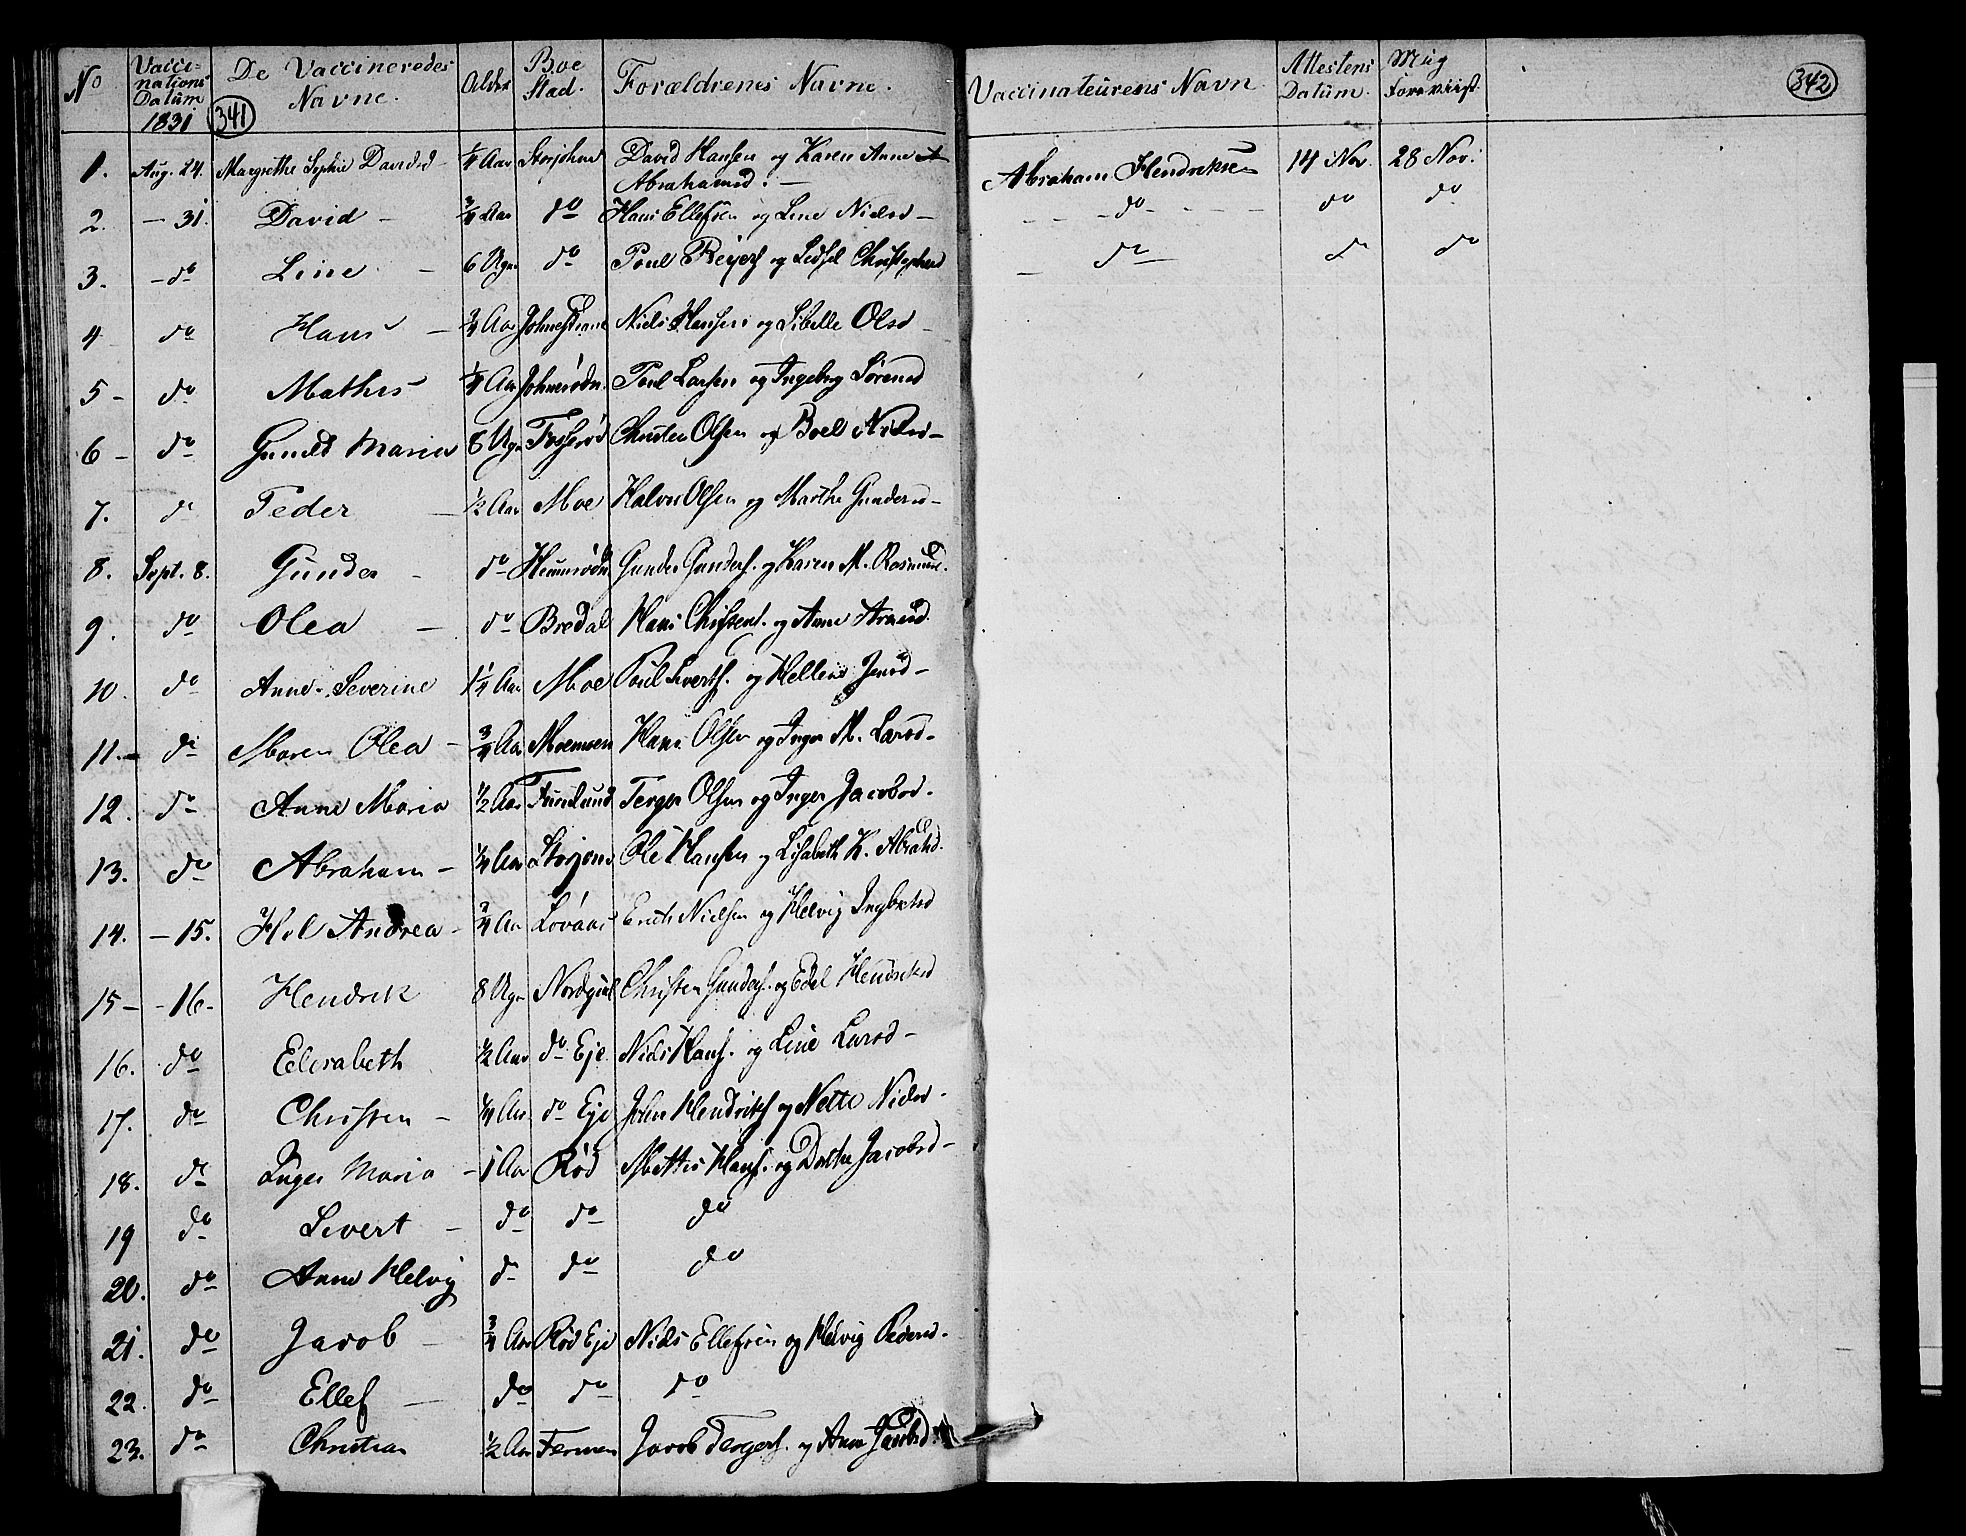 No Vaccinations Datum 1831 De Vaccineredes Navne. Alder Boe Stad. Forældrenes Navne. Vaccinateurens Navn Attestens Datum. Mig Foreviist.
341
342
1. Aug. 24. Margrethe Sophie Davidsd 1/4 Aar David Hansen og Karen Anne Abrahamsd. — Abraham Hendriksen 14 Nov. 28 Nov.
2. — 31. David — 3/4 Aar do Hans Ellefsen og Line Nielsd — do do do
3. — do Line — 6 Ugr do Poul og Christophersd — do do do
4 do Hans — 3/4 Aar Niels Hansen og Sibelle Olsd —
5 — do Mathis 1/4 Aar Poul Larsen og Ingebrg Sørensd
6 — do Maria 8 Ugr Christen Olsen og Boel Nielsd —
7. do Peder — 1/2 Aar Moe Halvor Olsen og Marthe Gundersd —
8. Sept. 8. Gunder — do Gunder Gunders. og Karen M. Rasmusd.
9. do Olea — do Bredal Hans og Anne
10. do Anne Severine 1 1/4 Aar Moe Poul Siverts. og Hellene Jensd —
11. — do Maren Olea — 3/4 Aar Moemoen Hans Olsen og Inger M. Larsd —
12. do Anne Maria 1/2 Aar Terger Olsen og Inger Jacobsd.
13. do Abraham — 1/4 Aar Ole Hansen og Lisabeth K. Abrahd.
14. — 15. Andrea — 3/4 Aar Løvaas Nielsen og Helvig
15 — — 16 — Hendrik 8 Ugr Christen Gunders. og Edel Hendriksd
16. do Elisabeth 1/2 Aar do Eje Niels Hans. og Line Larsd —
17. do Christen — 1/4 Aar do Eje John Hendriks. og Nette Nielsd —
18. do Inger Maria — 1 Aar Rød Mathis Hans. og Dorthe Jacobsd —
19 do Sivert — do do do
20. do Anne Helvig do do do
21. do Jacob — 3/4 Aar Rød Eje Niels Ellefsen og Helvig Pedersd.
22. do Ellef — do do do
23. do Christian 1/2 Aar Jacob Tergers. og Anne Jacobsd